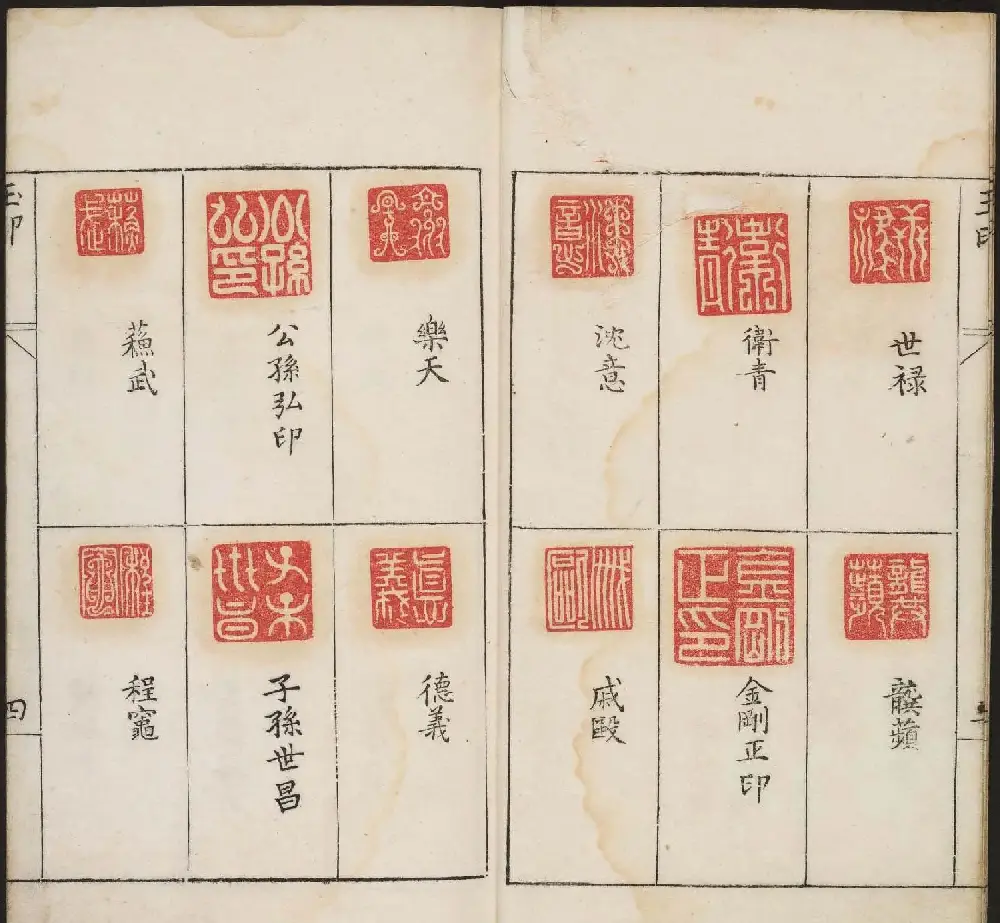 玉印
世禄
衛青
沈意
龔蘋
金剛正印
戚毆
樂天
公孫弘印
蘓武
德義
子孫世昌
程竈
玉印
四